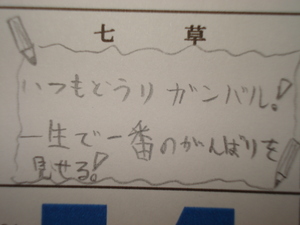 七草
いつもどうりガンバル!
一生で一番のがんばりを
見せる!